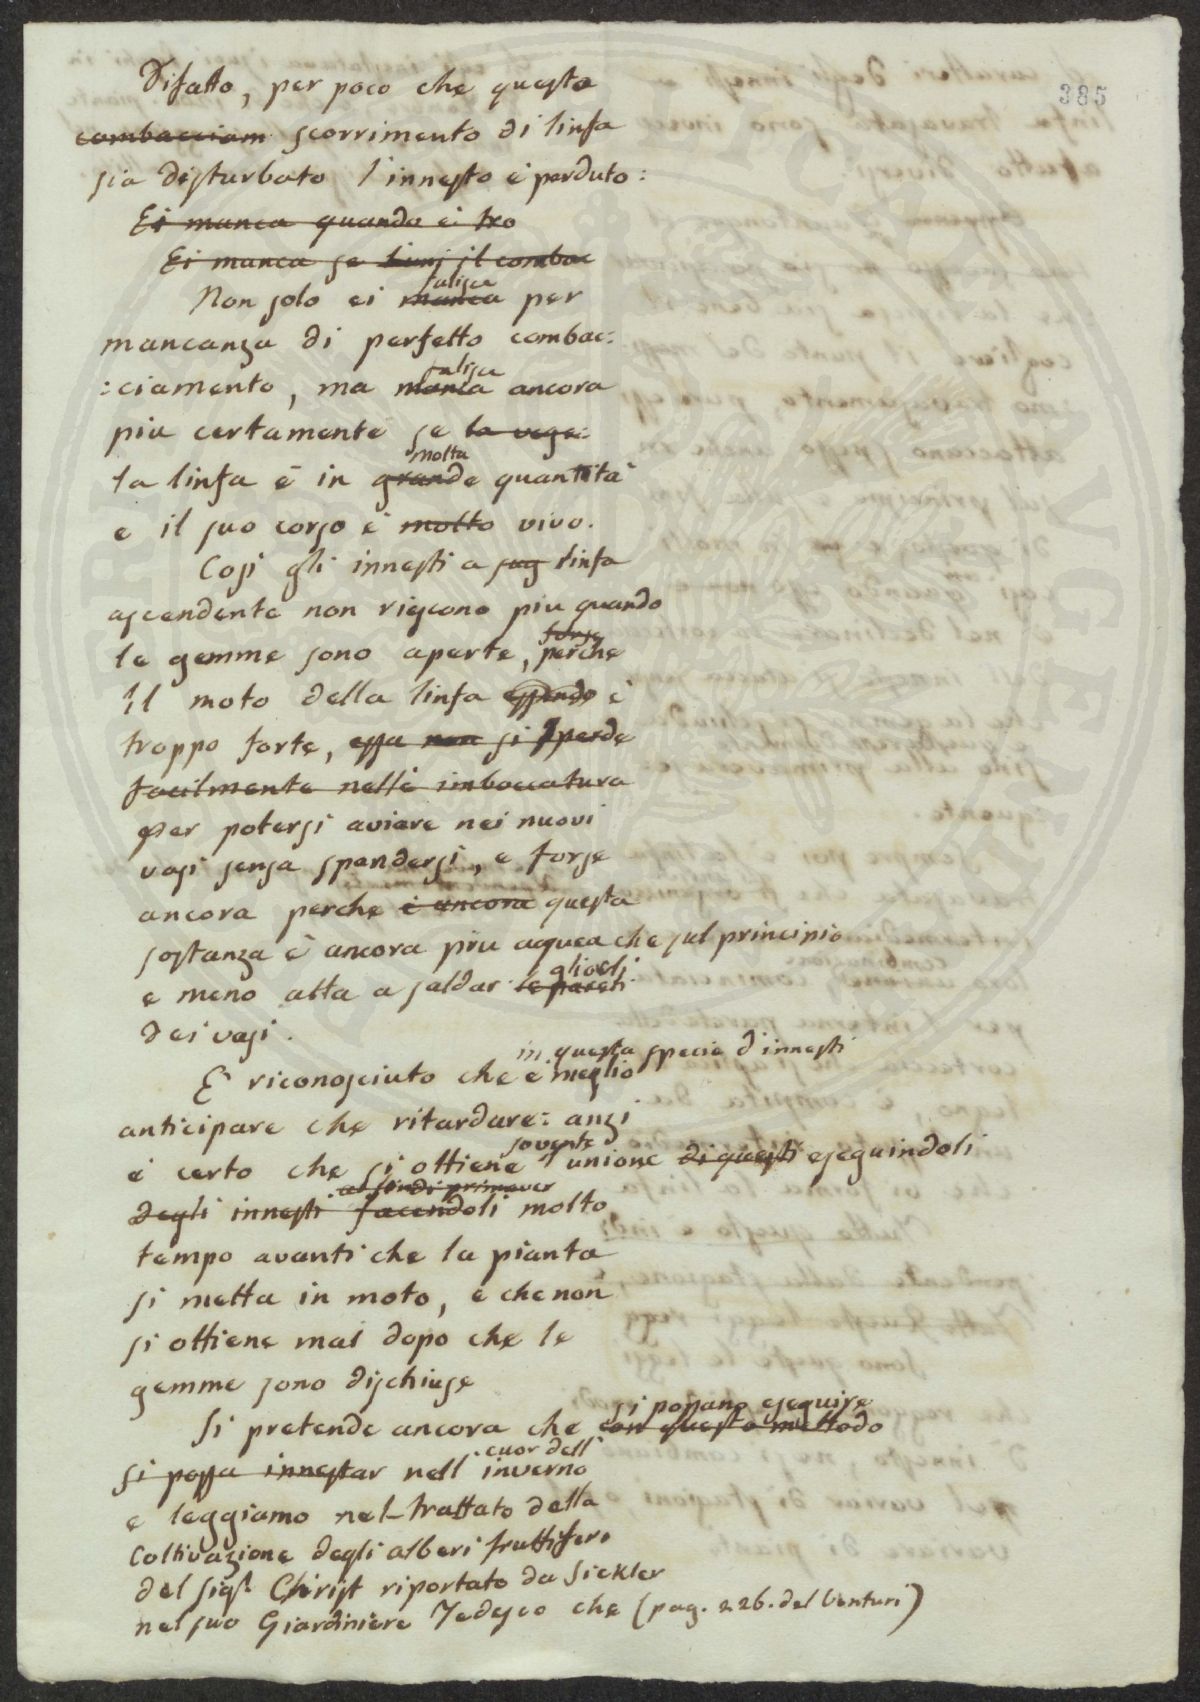 385
Difatto, per poco che questo
combacciam scorrimento di linfa
sia disturbato l'innesto è perduto:
Ei manca quando ei tro
Ei manca se il combac
falisce
Non solo ei manca per
mancanza di perfetto combac:
falisce
:ciamento, ma manca ancora
piu certamente se la vege:
molta
la linfa è in grande quantità
e il suo corso è molto vivo.
Cosi gli innesti a sug linfa
ascendente non riescono piu quando
forse
le gemme sono aperte, perche
il moto della linfa essendo è
troppo forte, essa non si sperde
facilmente nelle imboccatura
per potersi aviare nei nuovi
vasi senza spandersi, e forse
ancora perche è ancora questa
sostanza è ancora piu aquea che sul principio
gli orli
e meno atta a saldar le pareti
dei vasi.
in questa specie d'innesti
E' riconosciuto che è meglio
anticipare che ritardare: anzi
sovente
è certo che si ottiene l'unione di questi eseguindoli
degli innesti facendoli molto
tempo avanti che la pianta
si metta in moto, e che non
si ottiene mai dopo che le
gemme sono dischiuse
si possano eseguire
Si pretende ancora che con questo mettodo
cuor dell'
si possa innestar nell'inverno
e leggiamo nel trattato della
Coltivazione degli alberi fruttiferi
del sigr Christ riportato da Sickler
nel suo Giardiniere Tedesco che (pag. 226. del Venturi)